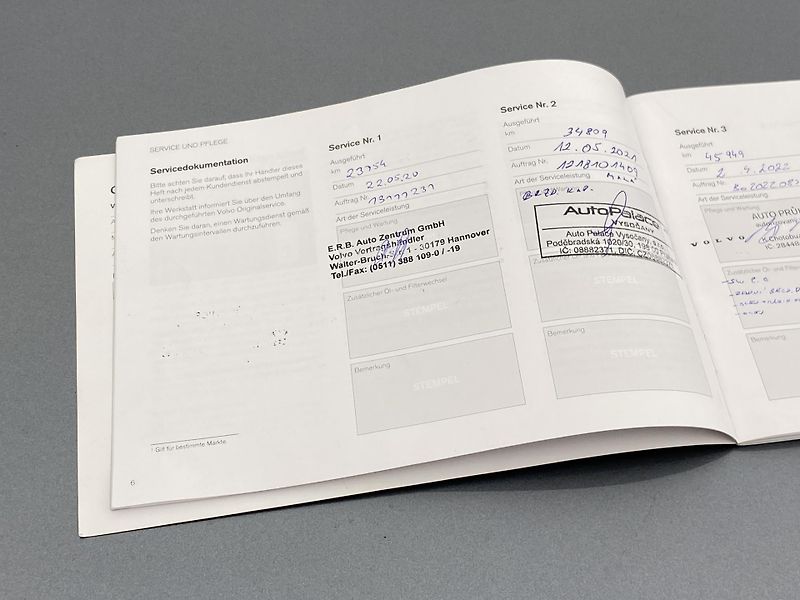 SERVICE UND PFLEGE
Servicedokumentation
Bitte achten Sie darauf, dass Ihr Händler dieses
Heft nach jedem Kundendienst abstempelt und
unterschreibt.
Ihre Werkstatt informiert Sie über den Umfang
des durchgeführten Volvo Originalservice.
Denken Sie daran, einen Wartungsdienst gemäß
den Wartungsintervallen durchzuführen.
1 Gilt für bestimmte Märkte.
6
Service Nr. 1
Ausgeführt
km 23754
Datum 22.05.20
Auftrag Nr.
Art der Serviceleistung
Pflege und Wartung
E.R.B. Auto Zentrum GmbH
Volvo Vertragshändler
Walter-Bruch- 1 - 30179 Hannover
Tel./Fax: (0511) 388 109-0 / -19
Zusätzlicher Öl- und Filterwechsel
STEMPEL
Bemerkung
STEMPEL
Service Nr. 2
Ausgeführt
km 34809
Datum 12.05.2021
Auftrag Nr. 1218101409
Art der Serviceleistung
AutoPalace
VYSOČANY
Auto Palace Vysočany, s.r.o.
Poděbradská 1020/30,
IČ: 08882371, DIČ:
STEMPEL
Bemerkung
STEMPEL
Service Nr. 3
Ausgeführt
km 45949
Datum 2. 4.2022
Auftrag Nr.
Art der Serviceleistung
Pflege und Wartung
AUTO PRŮ
VOLVO
K Chotobu
IČ: 28448
Zusätzlicher Öl- und Filterwechsel
Bemerkung